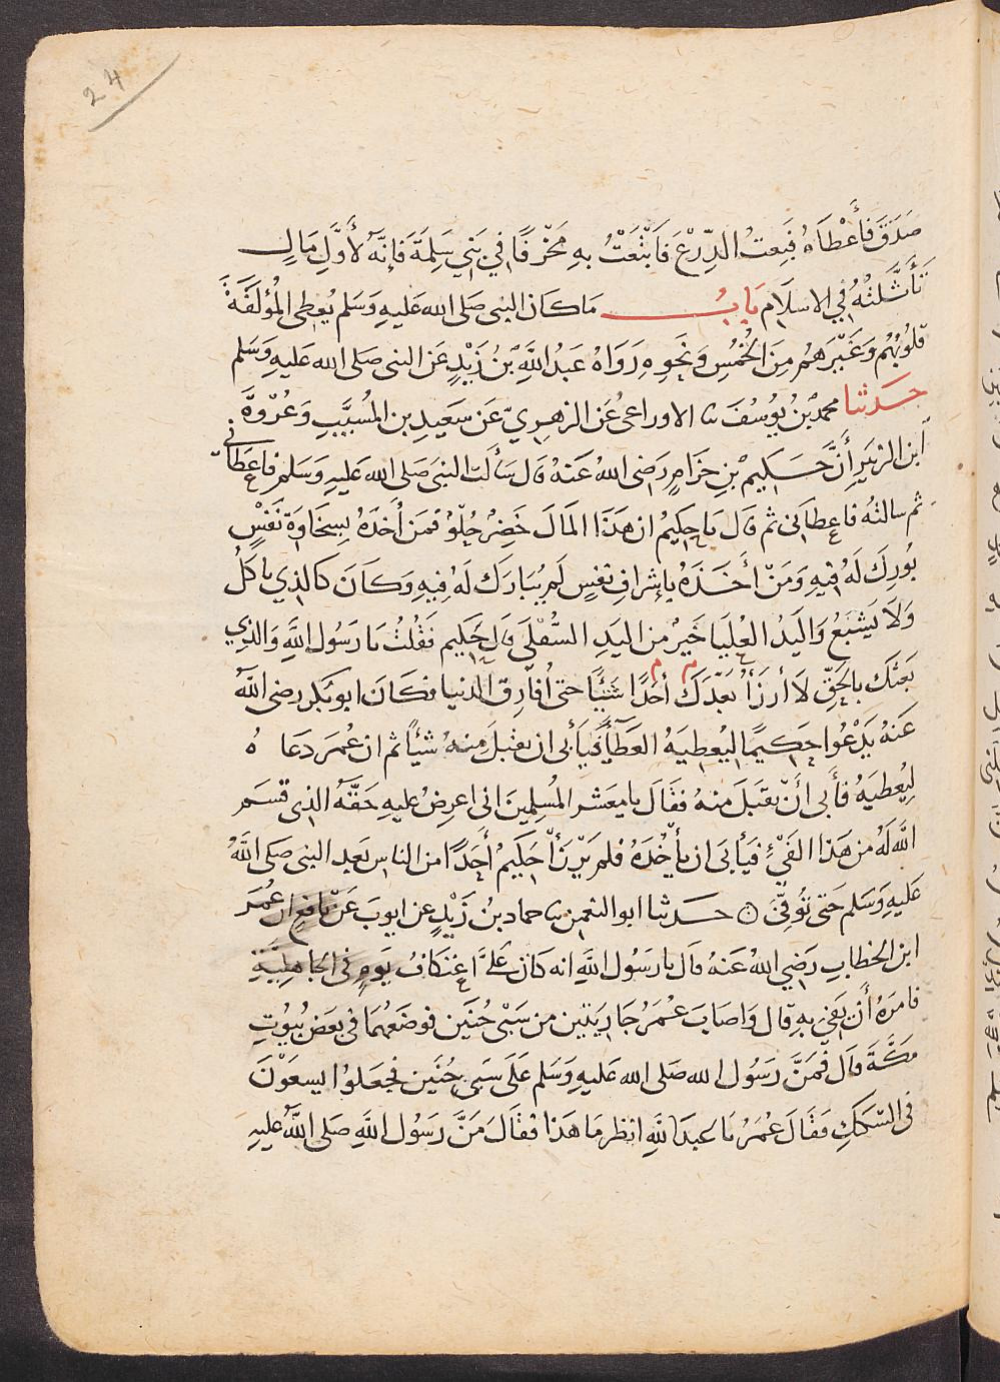 24
صَدَقَ فَأَعْطَاهُ فَبِعتُ الدِّرْعَ فَابْتَعْتُ بِهِ مَخْرَفًا فِي بَنِي سَلِمَةَ فَإِنَّهُ لَأَوَّلُ مَالٍ
تَأَثَّلتُهُ فِي الاسلَامِ بَابُ مَا كَانَ النبى صَلى الله عَليهِ وَسَلم يُعطِى الْمُؤَلَفَةَ
قُلُوبُهُم وَغَيْرَهُم مِنَ الْخُمُسِ وَنَحوِهِ رَوَاهُ عَبدُ اللهِ بْنُ زَيْدٍ عَن النبى صَلى الله عَليهِ وَسَلم
حَدثنا محمدُ بْنُ يُوسُفَ نا الاوراعى عَن الزهرِيّ عَن سَعِيدِ بن المُسيَّبِ وَعُرْوَةَ
ابن الزبَيرِ أَنَّ حَكِيمَ بْنِ حِزَامٍ رَضى اللهُ عَنهُ قال سَألت النبىَ صَلى الله عَليهِ وَسَلم فاعطانى
ثم سالتهُ فاعطَانى ثم قَال يَا حكِيمُ ان هَذَا المَالَ خَضِرٌ حُلْوٌ فَمَن أَخَذَهُ بِسَخَاوَةِ نَفْسٍ
بُورِكَ لَهُ فِيهِ وَمَنْ أَخَذَهُ بِإشرافِ نفسٍ لَم يُبَارَك لَهُ فِيهِ وَكَانَ كالذِي ياكلُ
وَلاَ يَشبَعُ وَاليَدُ العُليَا خَيرٌ من اليَدِ السُّفْلَى قال حَكِيم فَقُلتُ يَا رَسُول اللهِ وَالذِي
بَعثكَ بِالحَقِّ لاَ أَرزَأُ بَعْدَكَ أَحَدًا شَيْئًا حتى أُفَارِقَ الدنيا فكَانَ ابو بكر رضى اللهُ
عَنهُ يَدْعُوا حَكِيمًا ليُعطِيَهُ العَطَاءَ فَيَأْبى ان يقبَلَ مِنهُ شَيْئًا ثم ان عُمرَ دَعَا هُ
لِيُعطِيَهُ فَأَبى أَنْ يقبَلَ منهُ فقَالَ يا معشر المُسلِمينَ انى اعرِضُ عليهِ حَقَّهُ الذِى قسَمَ
اللهُ لَهُ من هَذَا الفَيْءِ فَيَأبَى ان يأْخُذَهُ فلم يَرْزَأْ حَكِيمٌ أَحَدًا من الناس بَعدِ النبى صَلى اللهُ
عَليهِ وَسَلم حَتى تُوُفِّيَ ه حَدثنا ابو النعمن نا حماد بنُ زَيْدٍ عن ايوبَ عَنْ نافعٍ ان عُمَرَ
ابن الخطابِ رَضِي اللهُ عَنهُ قال يا رَسُول اللهِ انه كَانَ عَلَىَّ اعْتكافُ يَومٍ فى الجاهِليَّةِ
فامَرَهُ أَنْ يَفِىَ بِهِ قال وَاصَابَ عُمَرُ جَارِيَتَين من سَبْى حُنَين فوضعَهُمَا فى بَعض بُيُوتِ
مَكَّةَ قال فَمَنَّ رَسُول الله صَلى الله عَليهِ وَسَلم عَلَى سَبى حُنَين فَجعَلوُا يسعَوْنَ
فى السِّكَكِ فَقَالَ عُمَرُ يَا عبدَ اللهِ انظر مَا هَذَا فَقَالَ مَنَّ رَسُول اللهِ صَلى اللهُ عليهِ